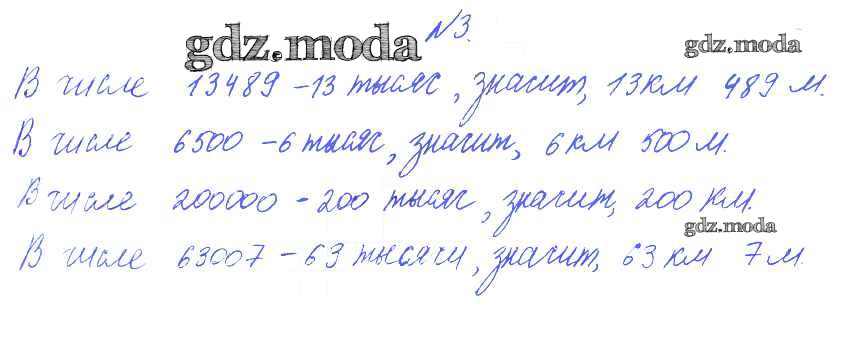 gdz.moda №3. gdz.moda
В числе 13489 – 13 тысяч, значит, 13 км 489 м.
В числе 6500 – 6 тысяч, значит, 6 км 500 м.
В числе 200000 – 200 тысяч, значит, 200 км.
gdz.moda
В числе 63007 – 63 тысячи, значит, 63 км 7 м.